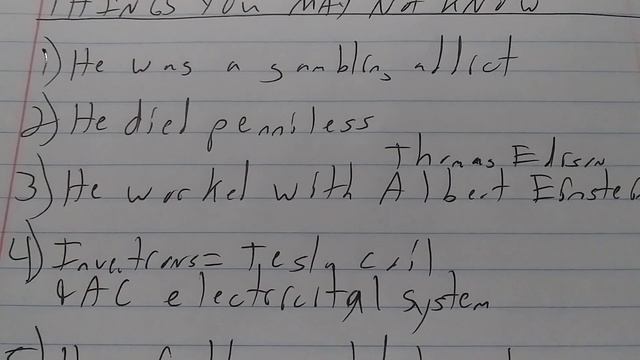 THINGS YOU MAY NOT KNOW
1) He was a gambling addict
2) He died penniless
Thomas Edison
3) He worked with Albert Einste
4) Inventions = Tesla coil
& AC electricital system